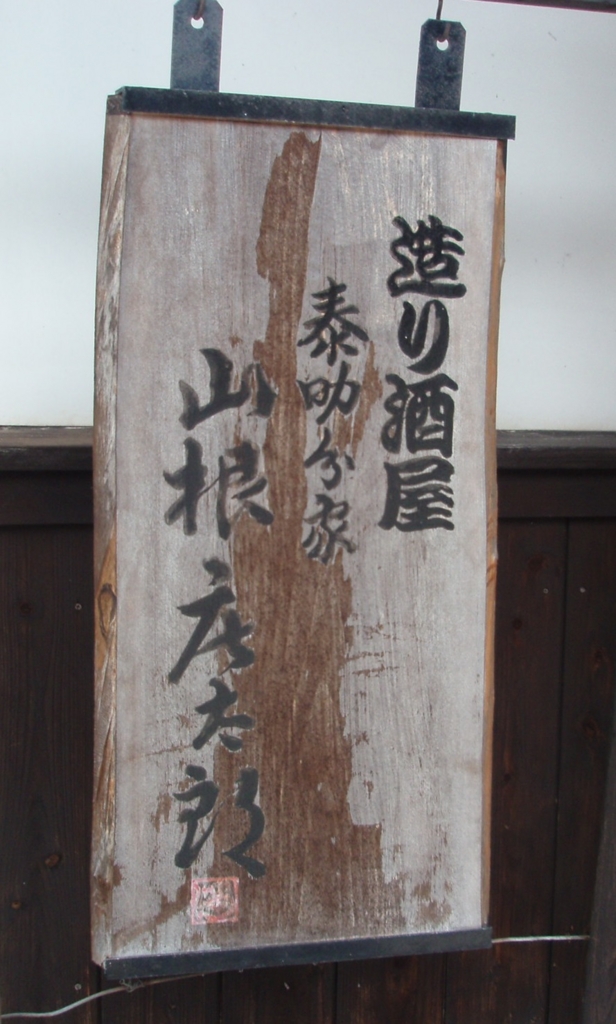 造り酒屋
泰助分家
山根庄太郎